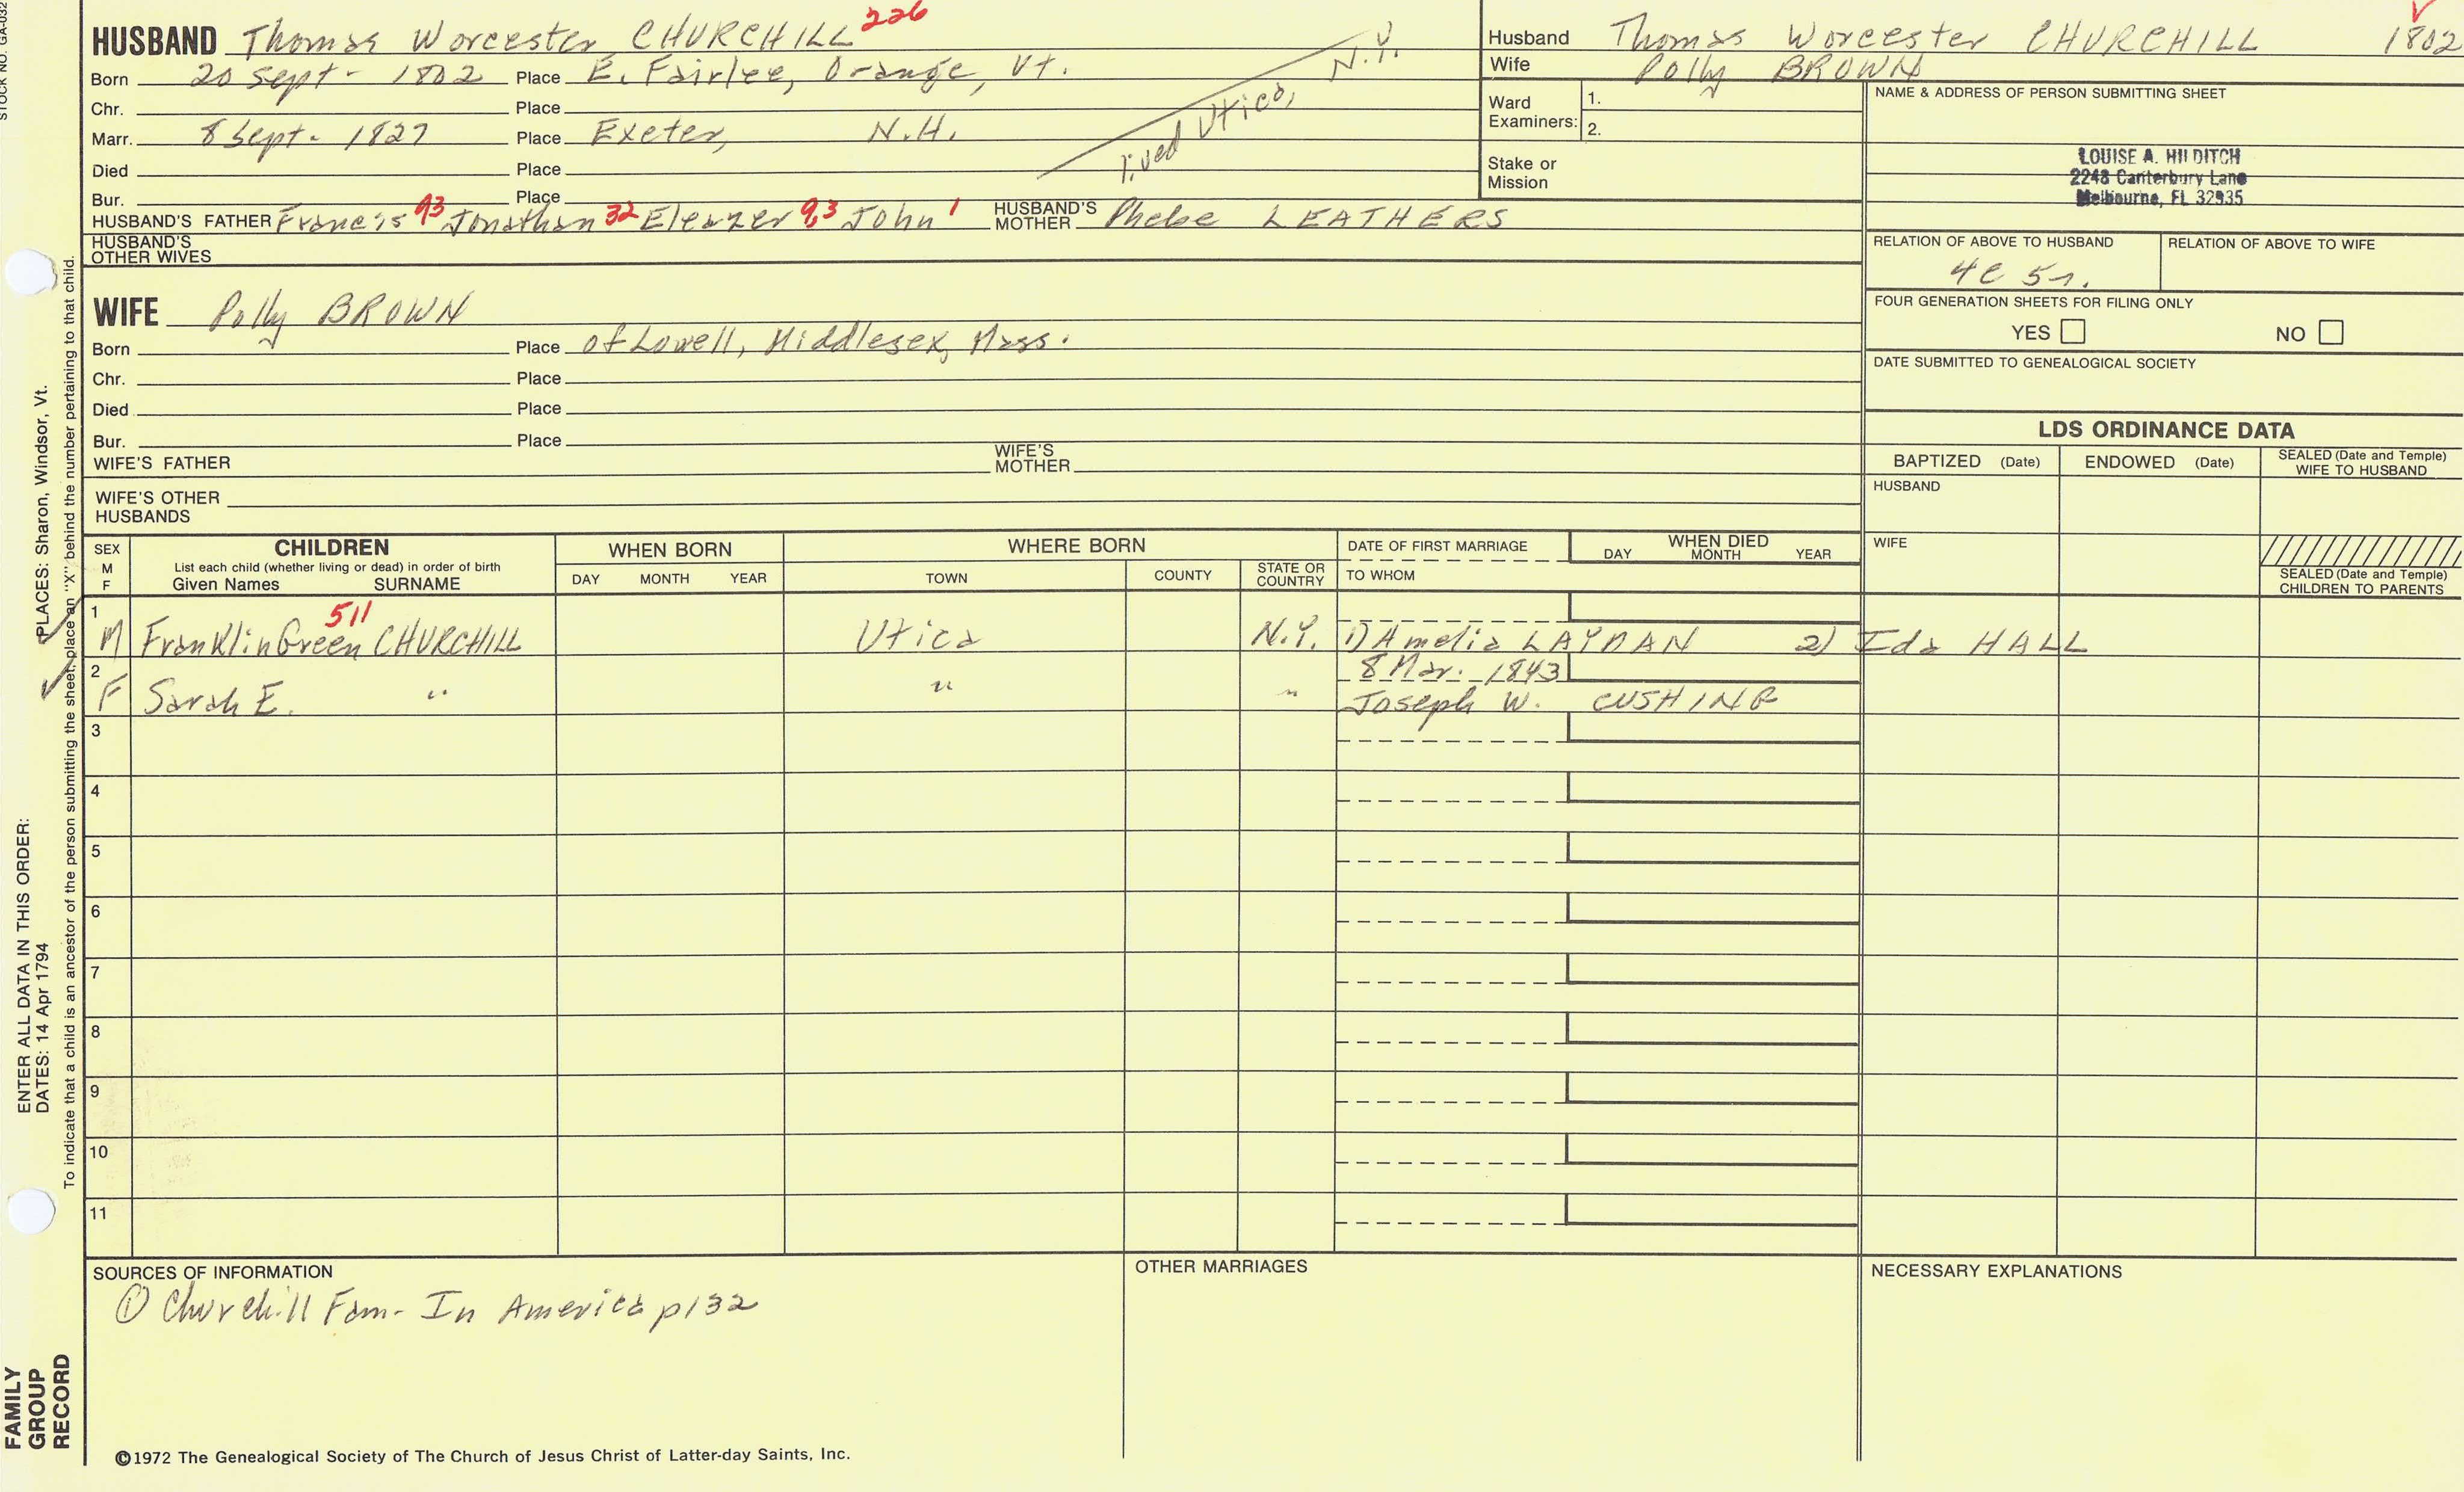 STOCK NO. GA-032
HUSBAND Thomas Worcester CHURCHILL 226
Born 20 Sept- 1802 Place E. Fairlee, Orange, Vt.
Chr. Place
Marr. 8 Sept- 1827 Place Exeter, N.H.
Died Place
Bur. Place
lived Utica, N.Y.
HUSBAND'S FATHER Francis 93 Jonathan 32 Eleazer 9,3 John 1 HUSBAND'S MOTHER Phebe LEATHERS
HUSBAND'S OTHER WIVES
Husband Thomas Worcester CHURCHILL 1802
Wife Polly BROWN
Ward Examiners: 1.
2.
Stake or Mission
NAME & ADDRESS OF PERSON SUBMITTING SHEET
LOUISE A. HILDITCH
2248 Canterbury Lane
Melbourne, FL 32935
RELATION OF ABOVE TO HUSBAND RELATION OF ABOVE TO WIFE
4C 5r.
FOUR GENERATION SHEETS FOR FILING ONLY
YES NO
DATE SUBMITTED TO GENEALOGICAL SOCIETY
WIFE Polly BROWN
Born Place of Lowell, Middlesex, Mass.
Chr. Place
Died Place
Bur. Place
WIFE'S FATHER WIFE'S MOTHER
WIFE'S OTHER HUSBANDS
LDS ORDINANCE DATA
BAPTIZED (Date) ENDOWED (Date) SEALED (Date and Temple) WIFE TO HUSBAND
HUSBAND
WIFE
SEALED (Date and Temple) CHILDREN TO PARENTS
SEX M F
CHILDREN
List each child (whether living or dead) in order of birth
Given Names SURNAME
WHEN BORN
DAY MONTH YEAR
WHERE BORN
TOWN COUNTY STATE OR COUNTRY
DATE OF FIRST MARRIAGE
TO WHOM
WHEN DIED
DAY MONTH YEAR
1 M Franklin Green CHURCHILL 511 Utica N.Y. 1) Amelia LAYDAN 2) Ida HALL
2 F Sarah E. " " " 8 Mar. 1843
Joseph W. CUSHING
3
4
5
6
7
8
9
10
11
SOURCES OF INFORMATION
① Churchill Fam- In America p132
OTHER MARRIAGES
NECESSARY EXPLANATIONS
©1972 The Genealogical Society of The Church of Jesus Christ of Latter-day Saints, Inc.
FAMILY GROUP RECORD
ENTER ALL DATA IN THIS ORDER:
DATES: 14 Apr 1794
PLACES: Sharon, Windsor, Vt.
To indicate that a child is an ancestor of the person submitting the sheet, place an "X" behind the number pertaining to that child.